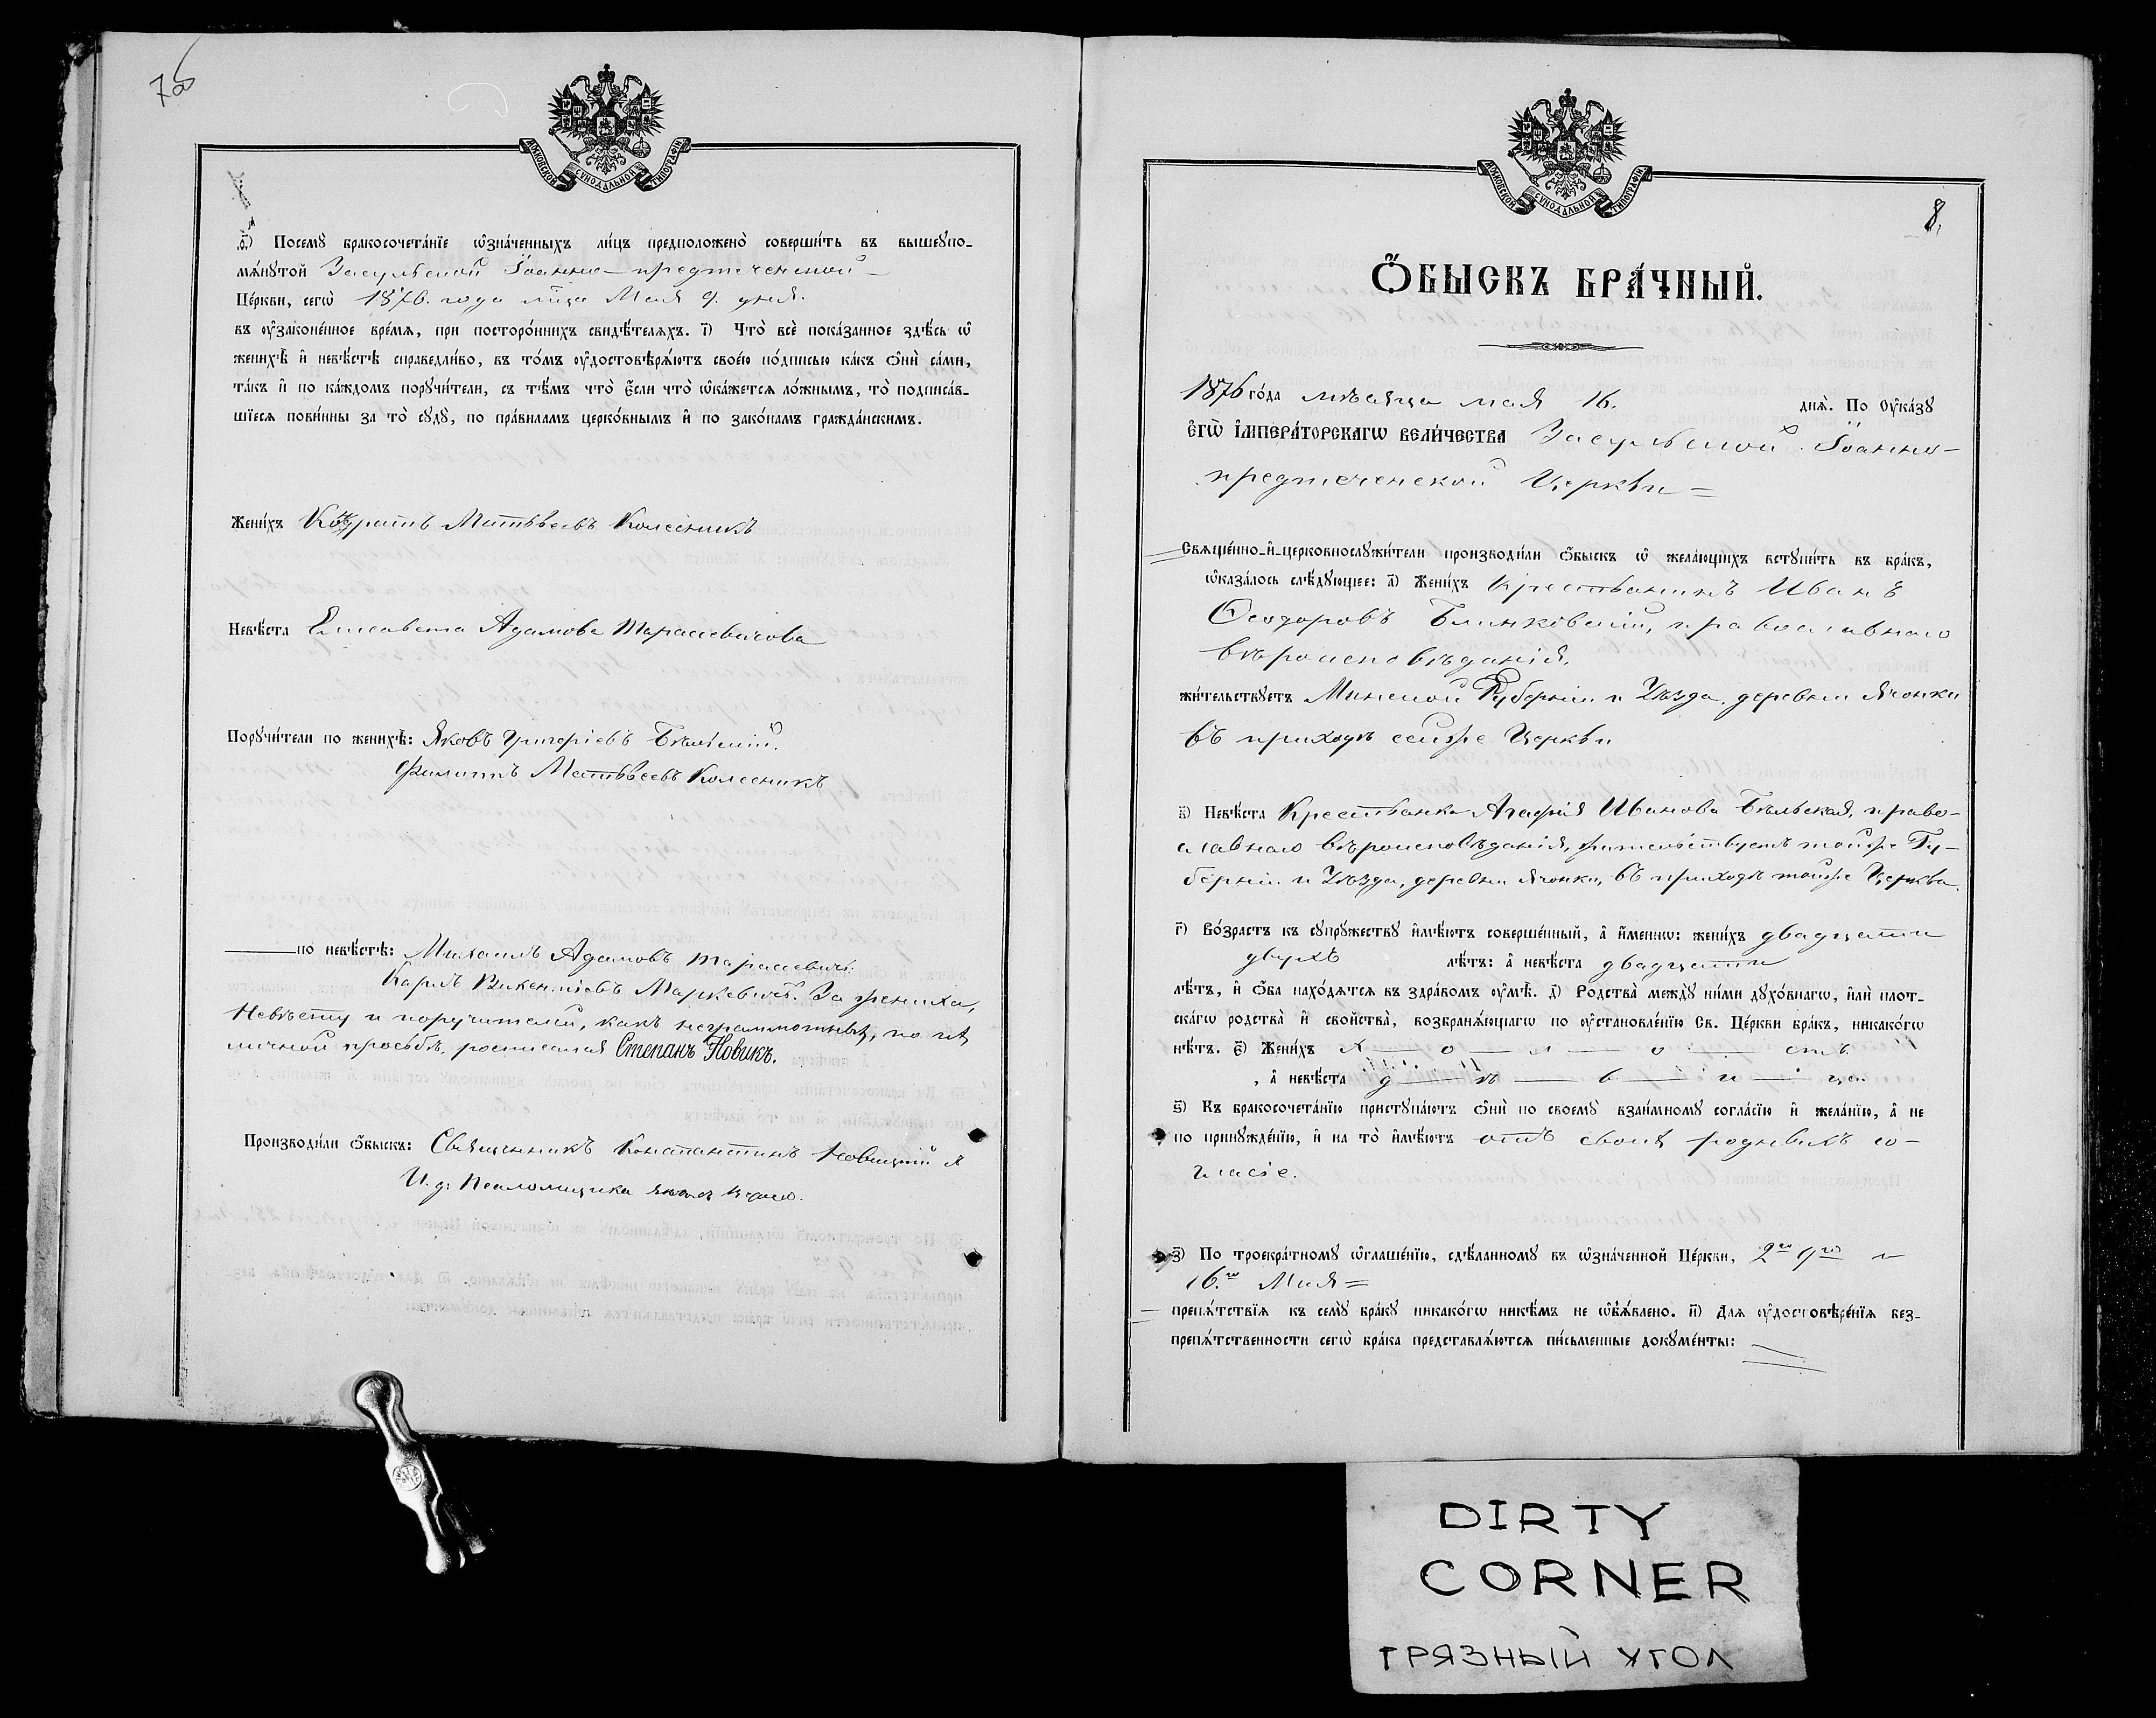 7об
МОСКОВСКОЙ СѴНОДАЛЬНОЙ ТИПОГРАФІИ
ѳ҃) Посемꙋ̀ бракосочета́нїе ѡ҆зна́ченныхъ ли́цъ предположено̀ соверши́ть въ вышеꙋпо-
мѧ́нꙋтой Засульской Іоанно-предтеченской
Це́ркви, сегѡ̀ 1876. года м͠ца Мая 9. дня.
въ ᲂу҆зако́ненное вре́мѧ, при посторо́ннихъ свидѣ́телѧхъ. і҃) Что̀ всѐ пока́занное здѣ́сь ѡ҆
женихѣ̀ и҆ невѣ́стѣ справедли́во, въ то́мъ ᲂу҆достовѣрѧ́ютъ свое́ю по́дписью ка́къ ѻ҆нѝ са́ми,
та́къ и҆ по ка́ждомъ порꙋчи́тели, съ тѣ́мъ что̀ є҆́сли что̀ ѡ҆ка́жетсѧ ло́жнымъ, то̀ подписа́в-
шїесѧ пови́нны за то̀ сꙋдꙋ̀, по пра́виламъ церко́внымъ и҆ по зако́намъ гражда́нскимъ.
Жени́хъ Кондратъ Матвѣевъ Колесникъ
Невѣ́ста Елисавета Адамова Тарасевичова
Порꙋчи́тели по женихѣ̀: Яковъ Григоріевъ Бѣльскій.
Филиппъ Матвѣевъ Колесникъ
по невѣ́стѣ: Михаилъ Адамовъ Тарасевичъ.
Карлъ Викентіевъ Маркевичъ. За жениха,
Невѣсту и поручителей, какъ неграмотныхъ, по ихъ
личной просьбѣ, росписался Степанъ Новикъ.
Производи́ли ѻ҆́быскъ: Священникъ Константинъ Новицкій
И. д. Псаломщика
8.
МОСКОВСКОЙ СѴНОДАЛЬНОЙ ТИПОГРАФІИ
Ѻ҆́БЫСКЪ БРА́ЧНЫЙ.
1876 го́да мѣсяца мая 16. днѧ̀. По ᲂу҆ка́зꙋ
є҆гѡ̀ і҆мпера́торскагѡ вели́чества Засульской Іоанно-
предтеченской Церкви =
Свѧще́нно-и҆-церковнослꙋжи́тели производи́ли ѻ҆́быскъ ѡ҆ жела́ющихъ встꙋпи́ть въ бра́къ,
ѡ҆каза́лось слѣ́дꙋющее: а҃) Жени́хъ Крестьянинъ Иванъ
Ѳеодоровъ Блинковскій, православнаго
вѣроисповѣданія.
жи́тельствꙋетъ Минской Губерніи и Уѣзда, деревни Ячонки
въ приходѣ сейже Церкви
в҃) Невѣ́ста Крестьянка Агафія Иванова Бѣльская, право-
славнаго вѣроисповѣданія, жительствуетъ тойже Гу-
берніи и Уѣзда, деревни Ячонки, въ приходѣ тойже Церкви.
г҃) Во́зрастъ къ сꙋпрꙋ́жествꙋ и҆мѣ́ютъ соверше́нный, а҆ и҆́меннѡ: жени́хъ двадцати
двухъ лѣ́тъ: а҆ невѣ́ста двадцати
лѣ́тъ, и҆ ѻ҆́ба нахо́дѧтсѧ въ здра́вомъ ᲂу҆мѣ̀. д҃) Родства̀ междꙋ̀ ни́ми дꙋхо́внагѡ, и҆лѝ плот-
ска́гѡ родства̀ и҆ сво́йства, возбранѧ́ющагѡ по ᲂу҆становле́нїю Св. Це́ркви бра́къ, никако́гѡ
нѣ́тъ. є҃) Жени́хъ х — о — л — о — стъ
, а҆ невѣ́ста д — ѣ — в — и — ца
ѕ҃) Къ бракосочета́нїю пристꙋпа́ютъ ѻ҆нѝ по своемꙋ̀ взаи́мномꙋ согла́сїю и҆ жела́нїю, а҆ не
по принꙋжде́нїю, и҆ на то̀ и҆мѣ́ютъ отъ своихъ родныхъ со-
гласіе.
з҃) По троекра́тномꙋ ѡ҆глаше́нїю, сдѣ́ланномꙋ въ ѡ҆зна́ченной Це́ркви, 2го 9го и
16.го Мая =
препѧ́тствїѧ къ семꙋ̀ бра́кꙋ никако́гѡ никѣ́мъ не ѡ҆б̾ѧ́влено. и҃) Длѧ ᲂу҆достовѣре́нїѧ без-
препѧ́тственности сегѡ̀ бра́ка представлѧ́ютсѧ пи́сьменные докꙋме́нты:
DIRTY
CORNER
ГРЯЗНЫЙ УГОЛ